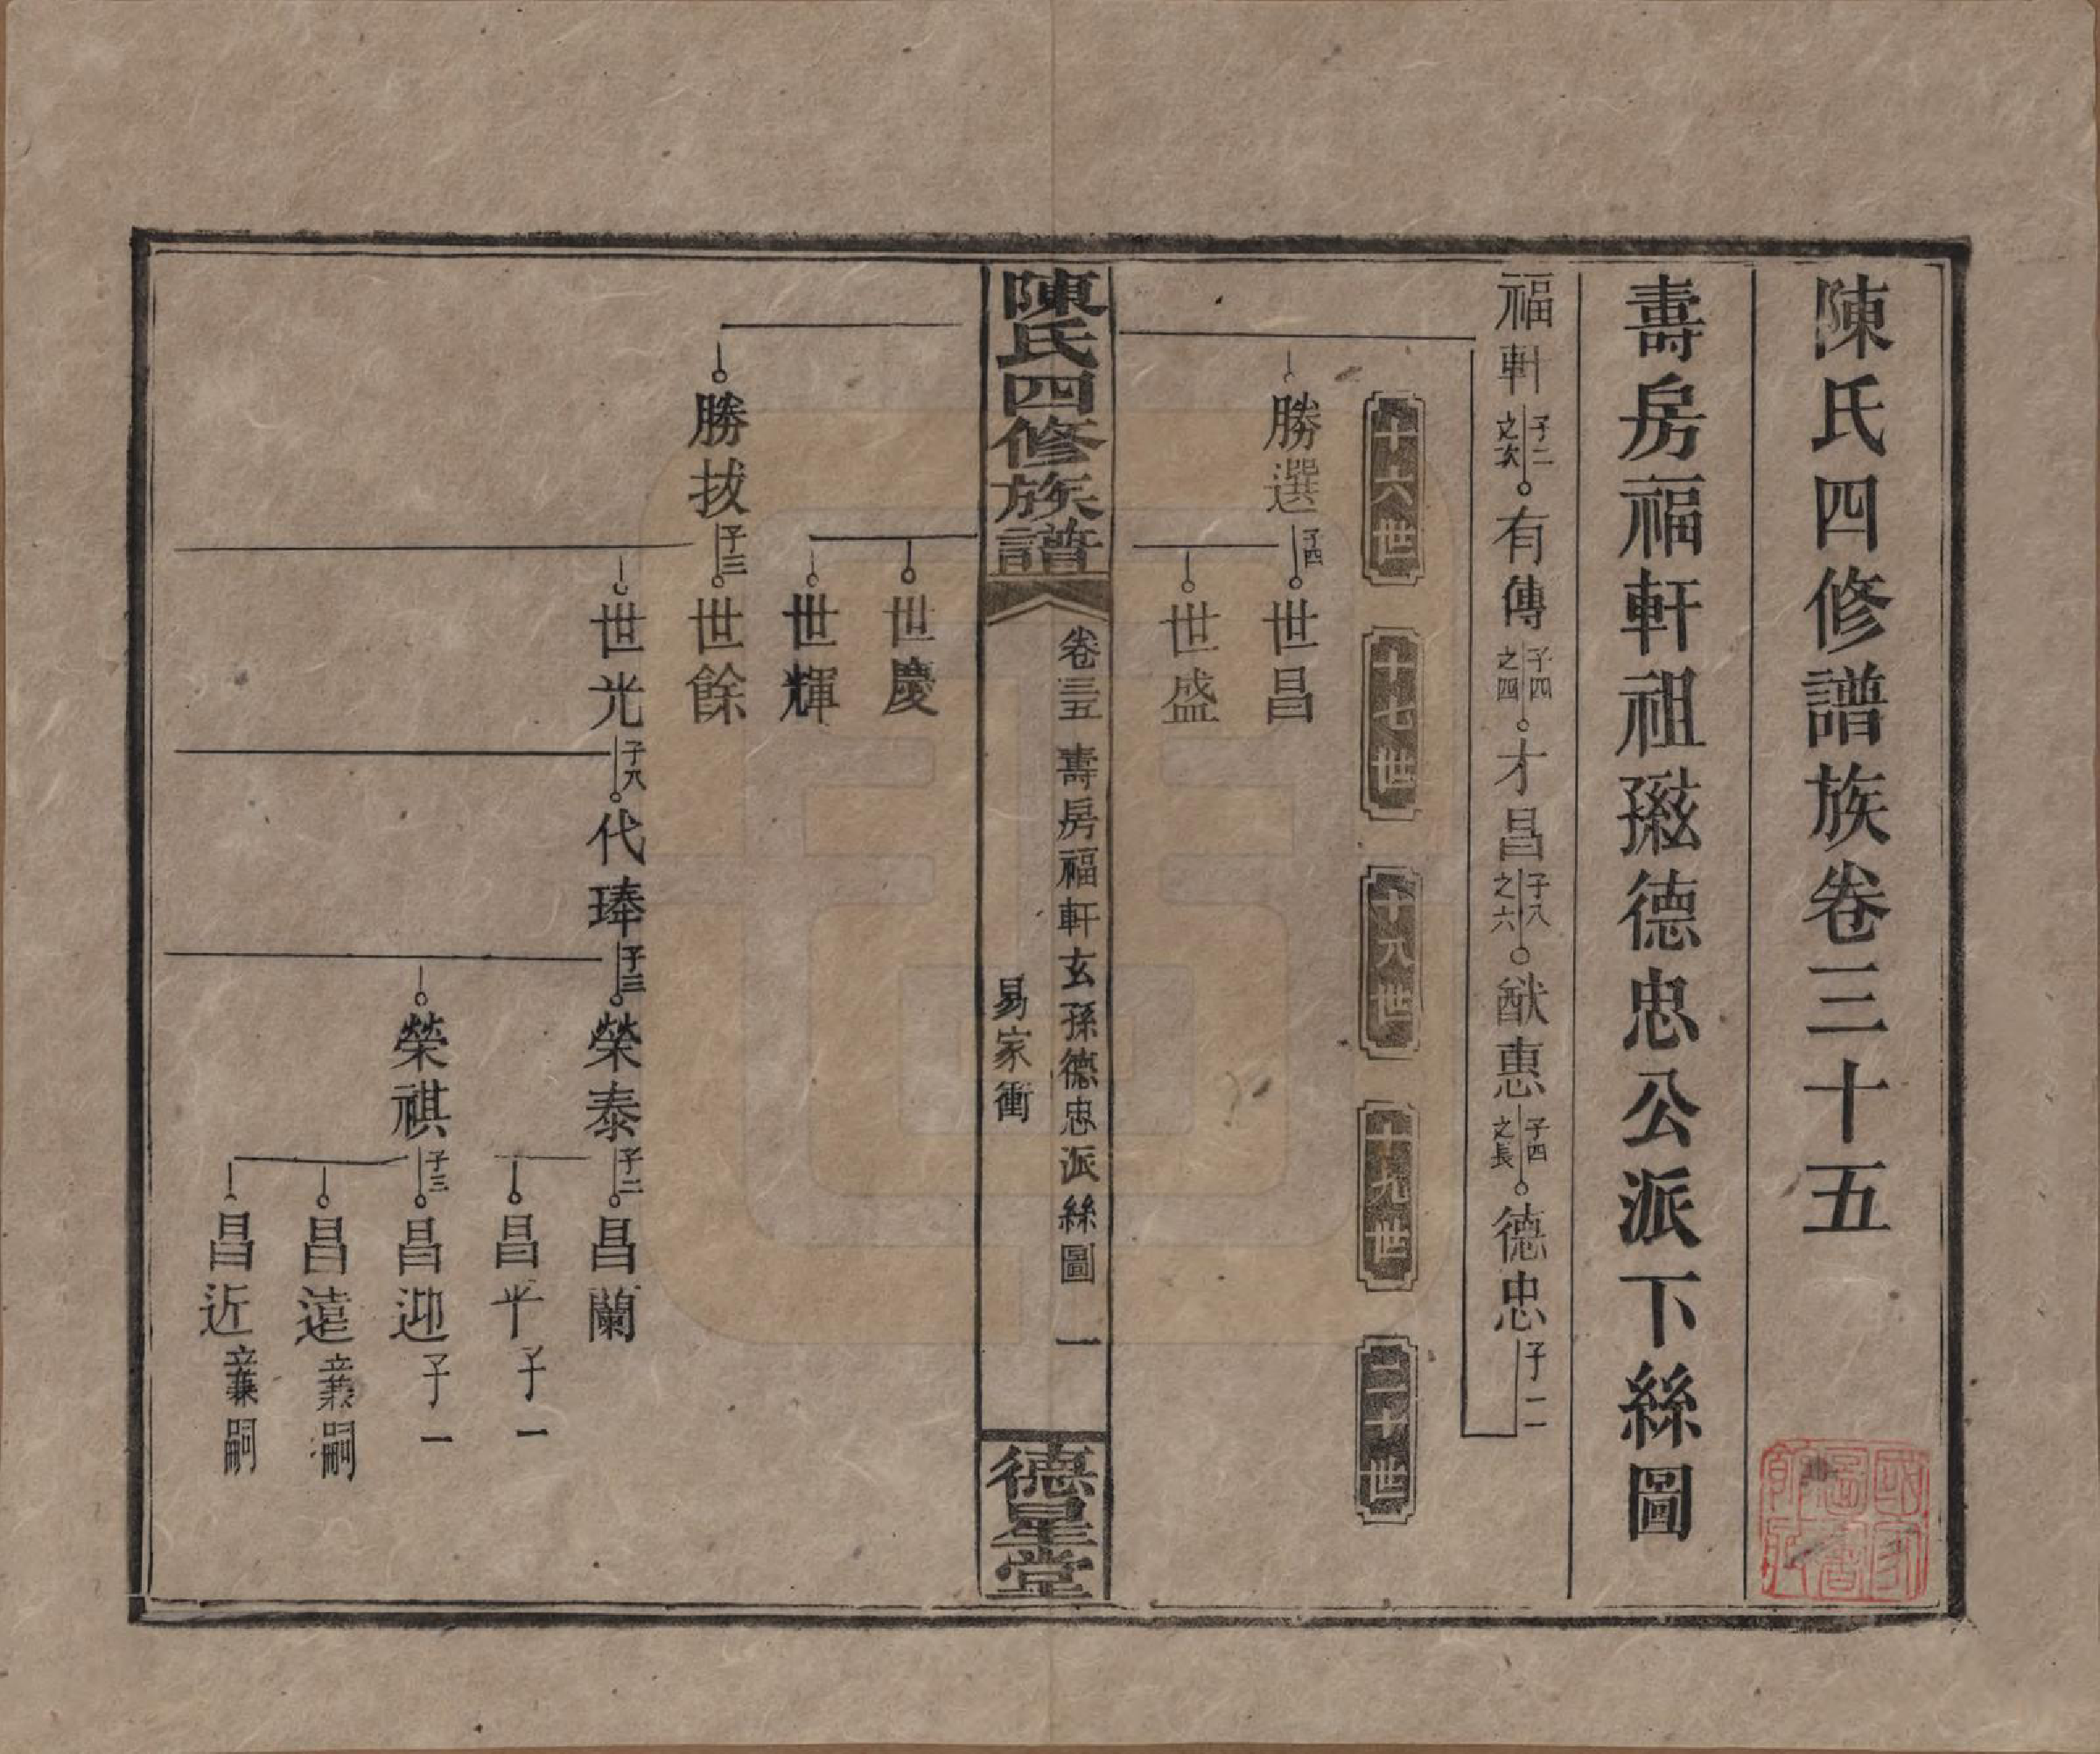 陳氏四修譜族卷三十五
壽房福軒祖㺭德忠公派下絲圖
福軒 子二之次 有傳 子四之四 才昌 子八之六 猷惠 子四之長 德忠 子二
十六世 十七世 十八世 十九世 二十世
勝選 子四 世昌
世盛
陳氏四修族譜 卷三五 壽房福軒玄孫德忠派絲圖 一 德星堂
易家衝
世慶
世輝
勝拔 子三 世餘
世光 子八 代琫 子三 榮泰 子二 昌蘭
昌平 子一
榮祺 子三 昌迎 子一
昌遠 兼嗣
昌近 兼嗣
國家圖書館藏